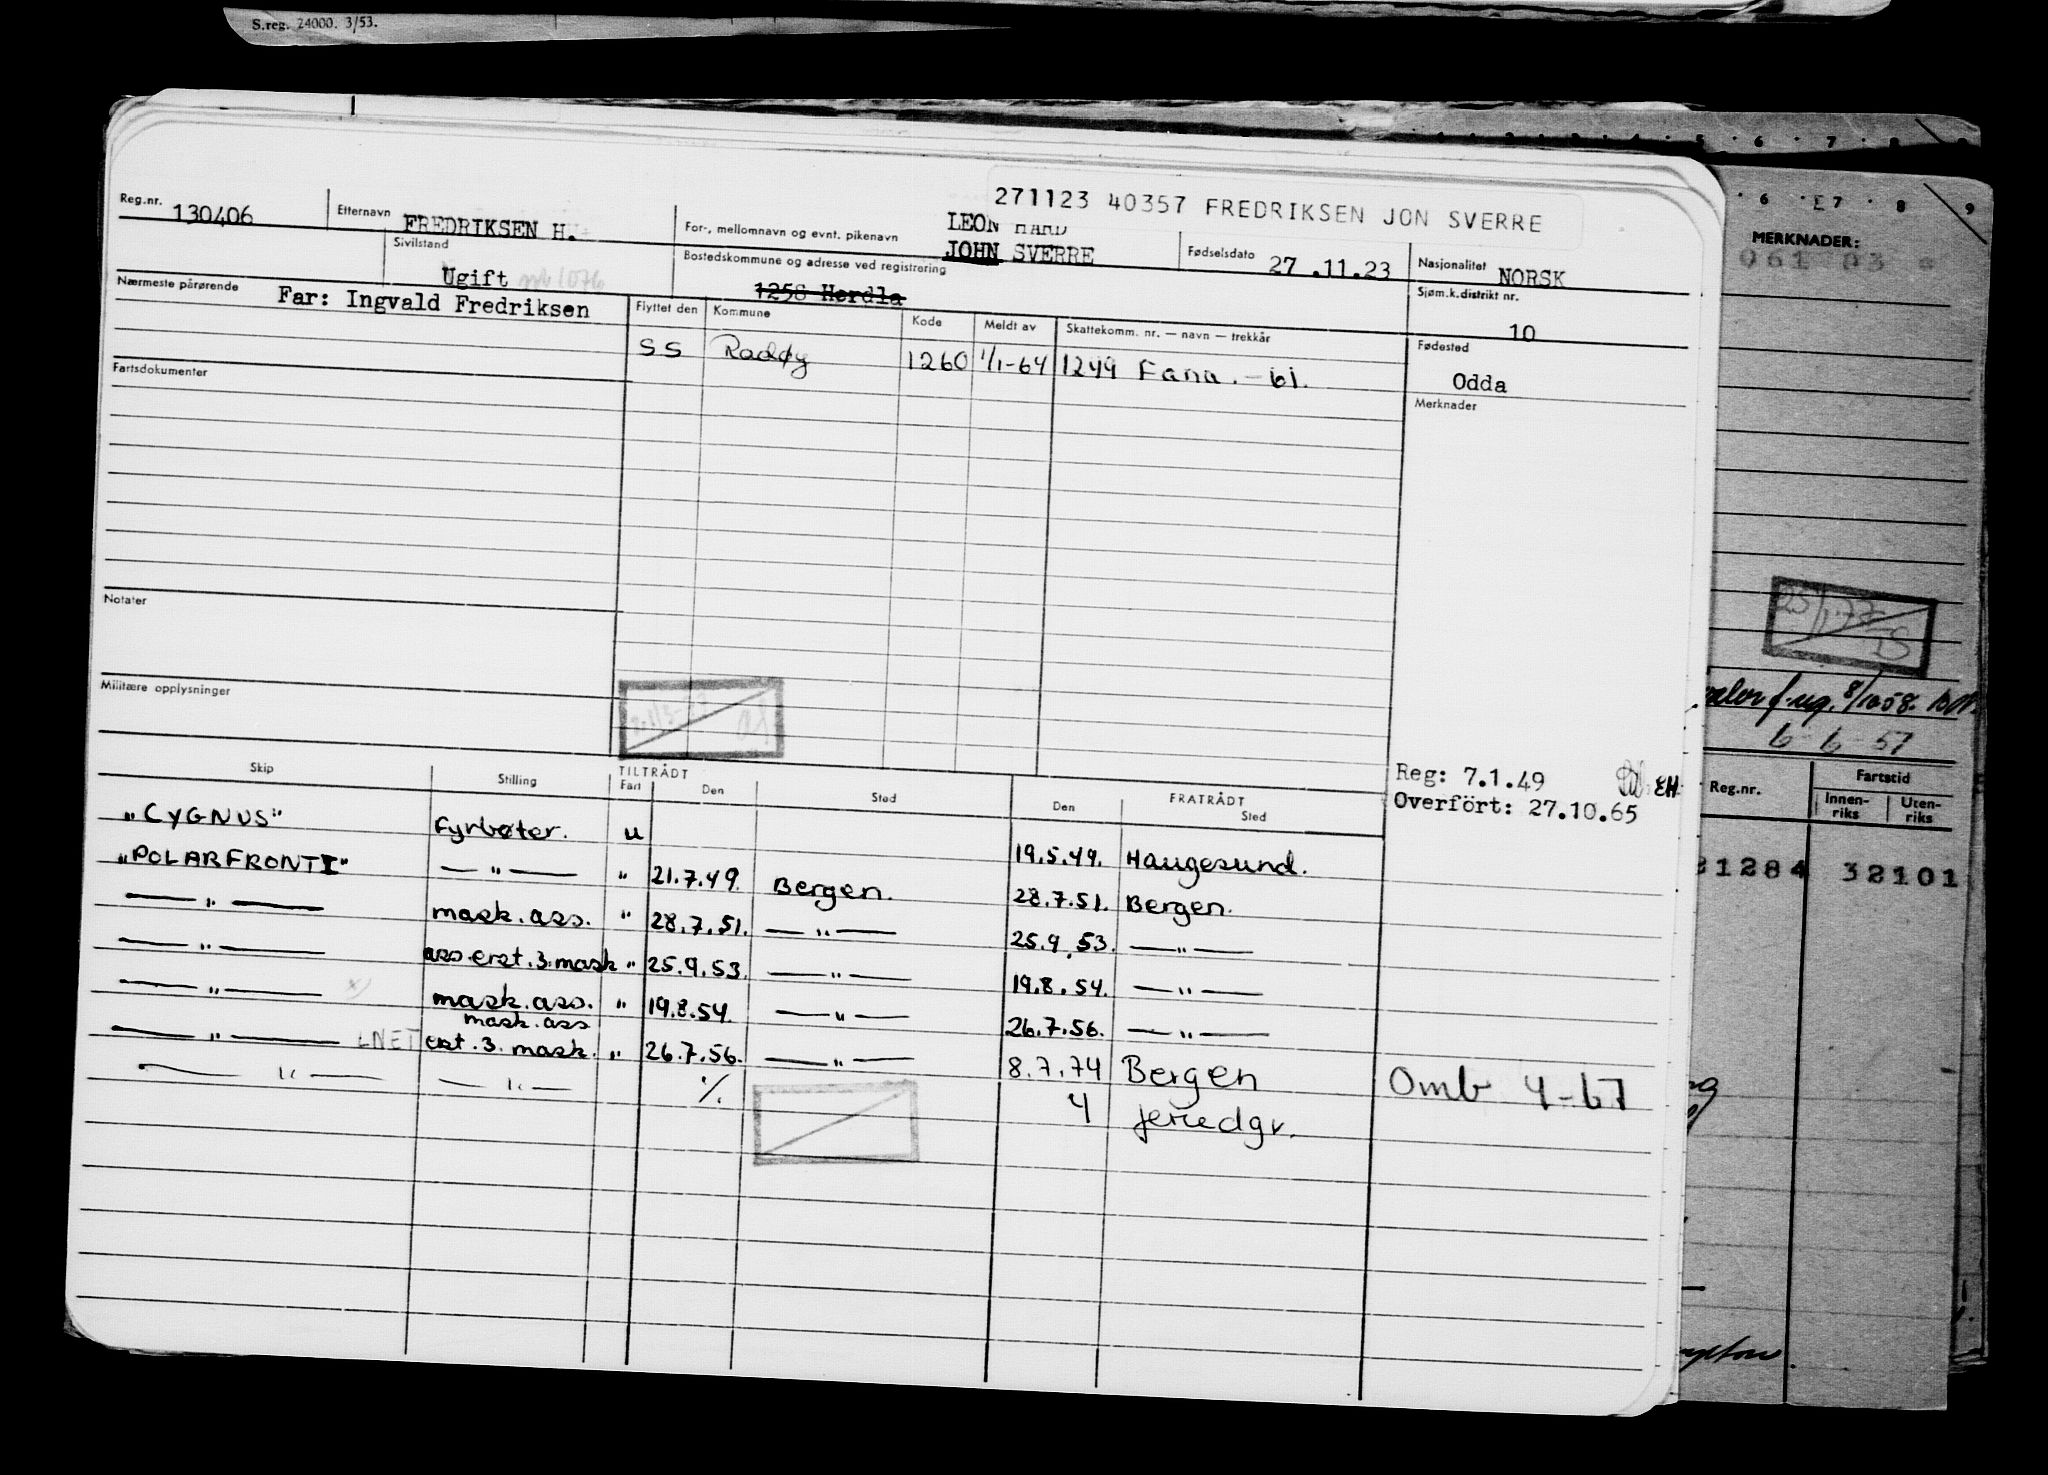 S.reg. 24000. 3/53.
271123 40357 FREDRIKSEN JON SVERRE
Reg.nr. 130406
Etternavn FREDRIKSEN H.
For-, mellomnavn og evnt. pikenavn LEON HARD
JOHN SVERRE
Fødselsdato 27.11.23
Nasjonalitet NORSK
Sivilstand Ugift
Bostedskommune og adresse ved registrering
1258 Herdla
Sjøm.k.distrikt nr. 10
Nærmeste pårørende Far: Ingvald Fredriksen
Flyttet den Kommune Kode Meldt av Skattekomm. nr. — navn — trekkår
SS Radøy 1260 1/1-64 1249 Fana.
Fødested Odda
Fartsdokumenter
Merknader
Notater
Militære opplysninger
Reg: 7.1.49 EH
Overfört: 27.10.65
Skip Stilling TILTRÅDT Fart Den Sted FRATRÅDT Den Sted
"CYGNUS" Fyrbøter. u 19.5.49. Haugesund.
"POLARFRONT I" — " — " 21.7.49. Bergen. 28.7.51. Bergen.
— " — mask. ass. " 28.7.51. — " — 25.9.53. — " —
— " — ass. erst. 3. mask " 25.9.53. — " — 19.8.54. — " —
— " — x) mask. ass. " 19.8.54. — " — 26.7.56. — " —
— " — LNET mask. ass erst. 3. mask. " 26.7.56. — " — 8.7.74 Bergen Omb 4-67
— " — — " — 4
MERKNADER:
6 7 8 9
6-6-57
Reg.nr. Fartstid
Innenriks Utenriks
21284 32101